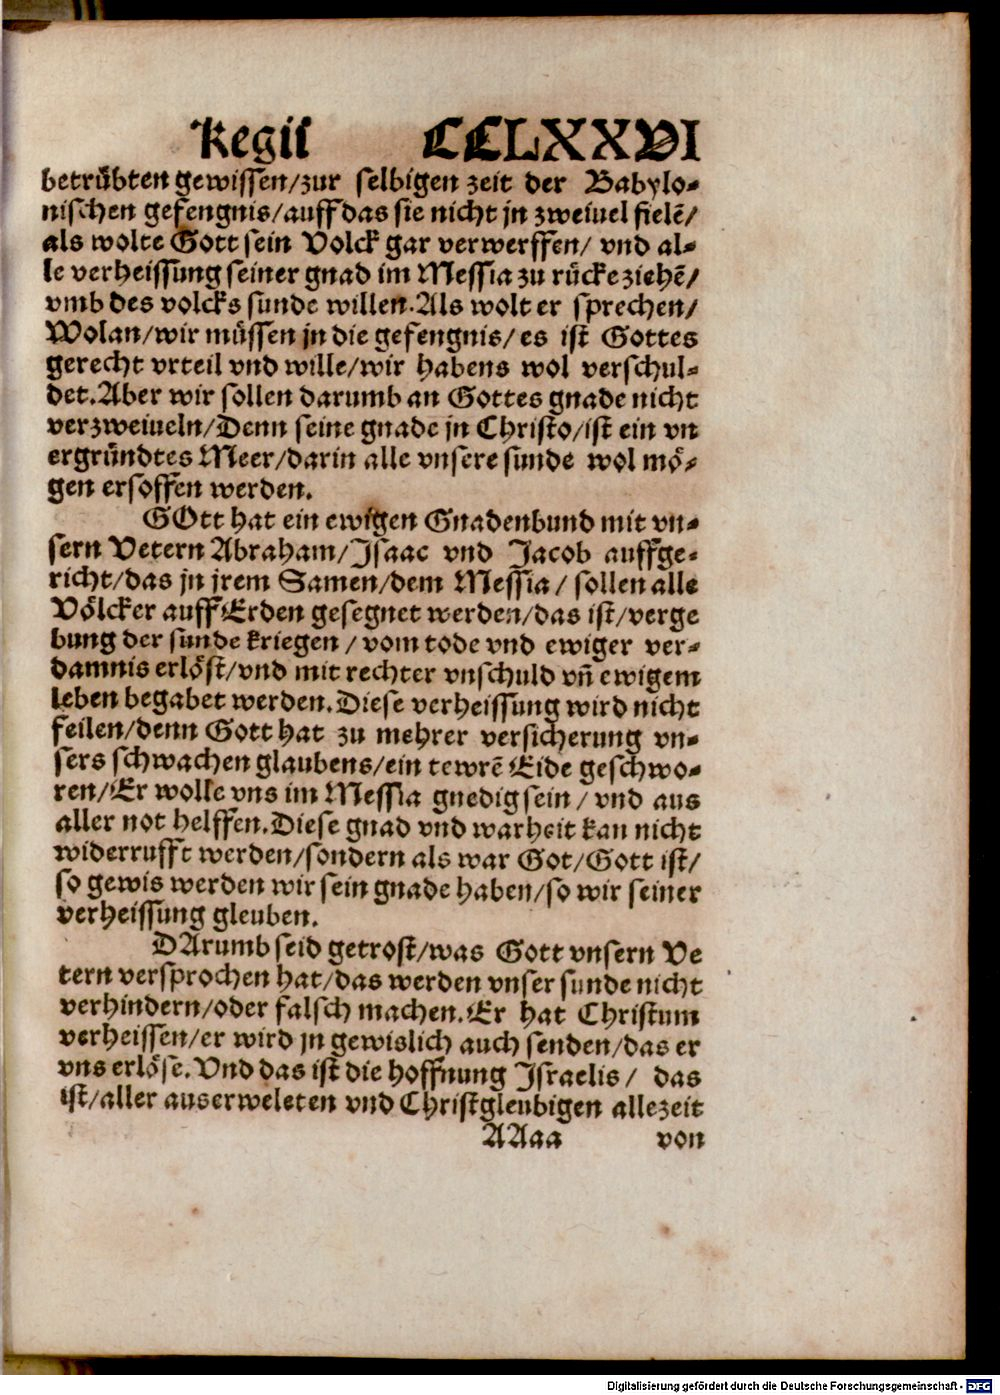 Regis CCLXXVI
betrübten gewissen/zur selbigen zeit der Babylo-
nischen gefengnis/auff das sie nicht jn zweiuel fielē/
als wolte Gott sein Volck gar verwerffen/ vnd al-
le verheissung seiner gnad im Messia zu rücke ziehē/
vmb des volcks sunde willen. Als wolt er sprechen/
Wolan/wir müssen jn die gefengnis/ es ist Gottes
gerecht vrteil vnd wille/wir habens wol verschul-
det. Aber wir sollen darumb an Gottes gnade nicht
verzweiueln/Denn seine gnade jn Christo/ist ein vn
ergründtes Meer/darin alle vnsere sunde wol mö-
gen ersoffen werden.
GOtt hat ein ewigen Gnadenbund mit vn-
sern Vetern Abraham/Isaac vnd Jacob auffge-
richt/das jn jrem Samen/dem Messia/ sollen alle
Völcker auff Erden gesegnet werden/das ist/verge
bung der sunde kriegen / vom tode vnd ewiger ver-
damnis erlöst/vnd mit rechter vnschuld vñ ewigem
leben begabet werden. Diese verheissung wird nicht
feilen/denn Gott hat zu mehrer versicherung vn-
sers schwachen glaubens/ein tewrē Eide geschwo-
ren/Er wolle vns im Messia gnedig sein / vnd aus
aller not helffen. Diese gnad vnd warheit kan nicht
widerrufft werden/sondern als war Got/Gott ist/
so gewis werden wir sein gnade haben/so wir seiner
verheissung gleuben.
DArumb seid getrost/was Gott vnsern Ve
tern versprochen hat/das werden vnser sunde nicht
verhindern/oder falsch machen. Er hat Christum
verheissen/er wird jn gewislich auch senden/das er
vns erlöse. Vnd das ist die hoffnung Israelis/ das
ist/aller auserweleten vnd Christgleubigen allezeit
AAaa von
Digitalisierung gefördert durch die Deutsche Forschungsgemeinschaft - DFG